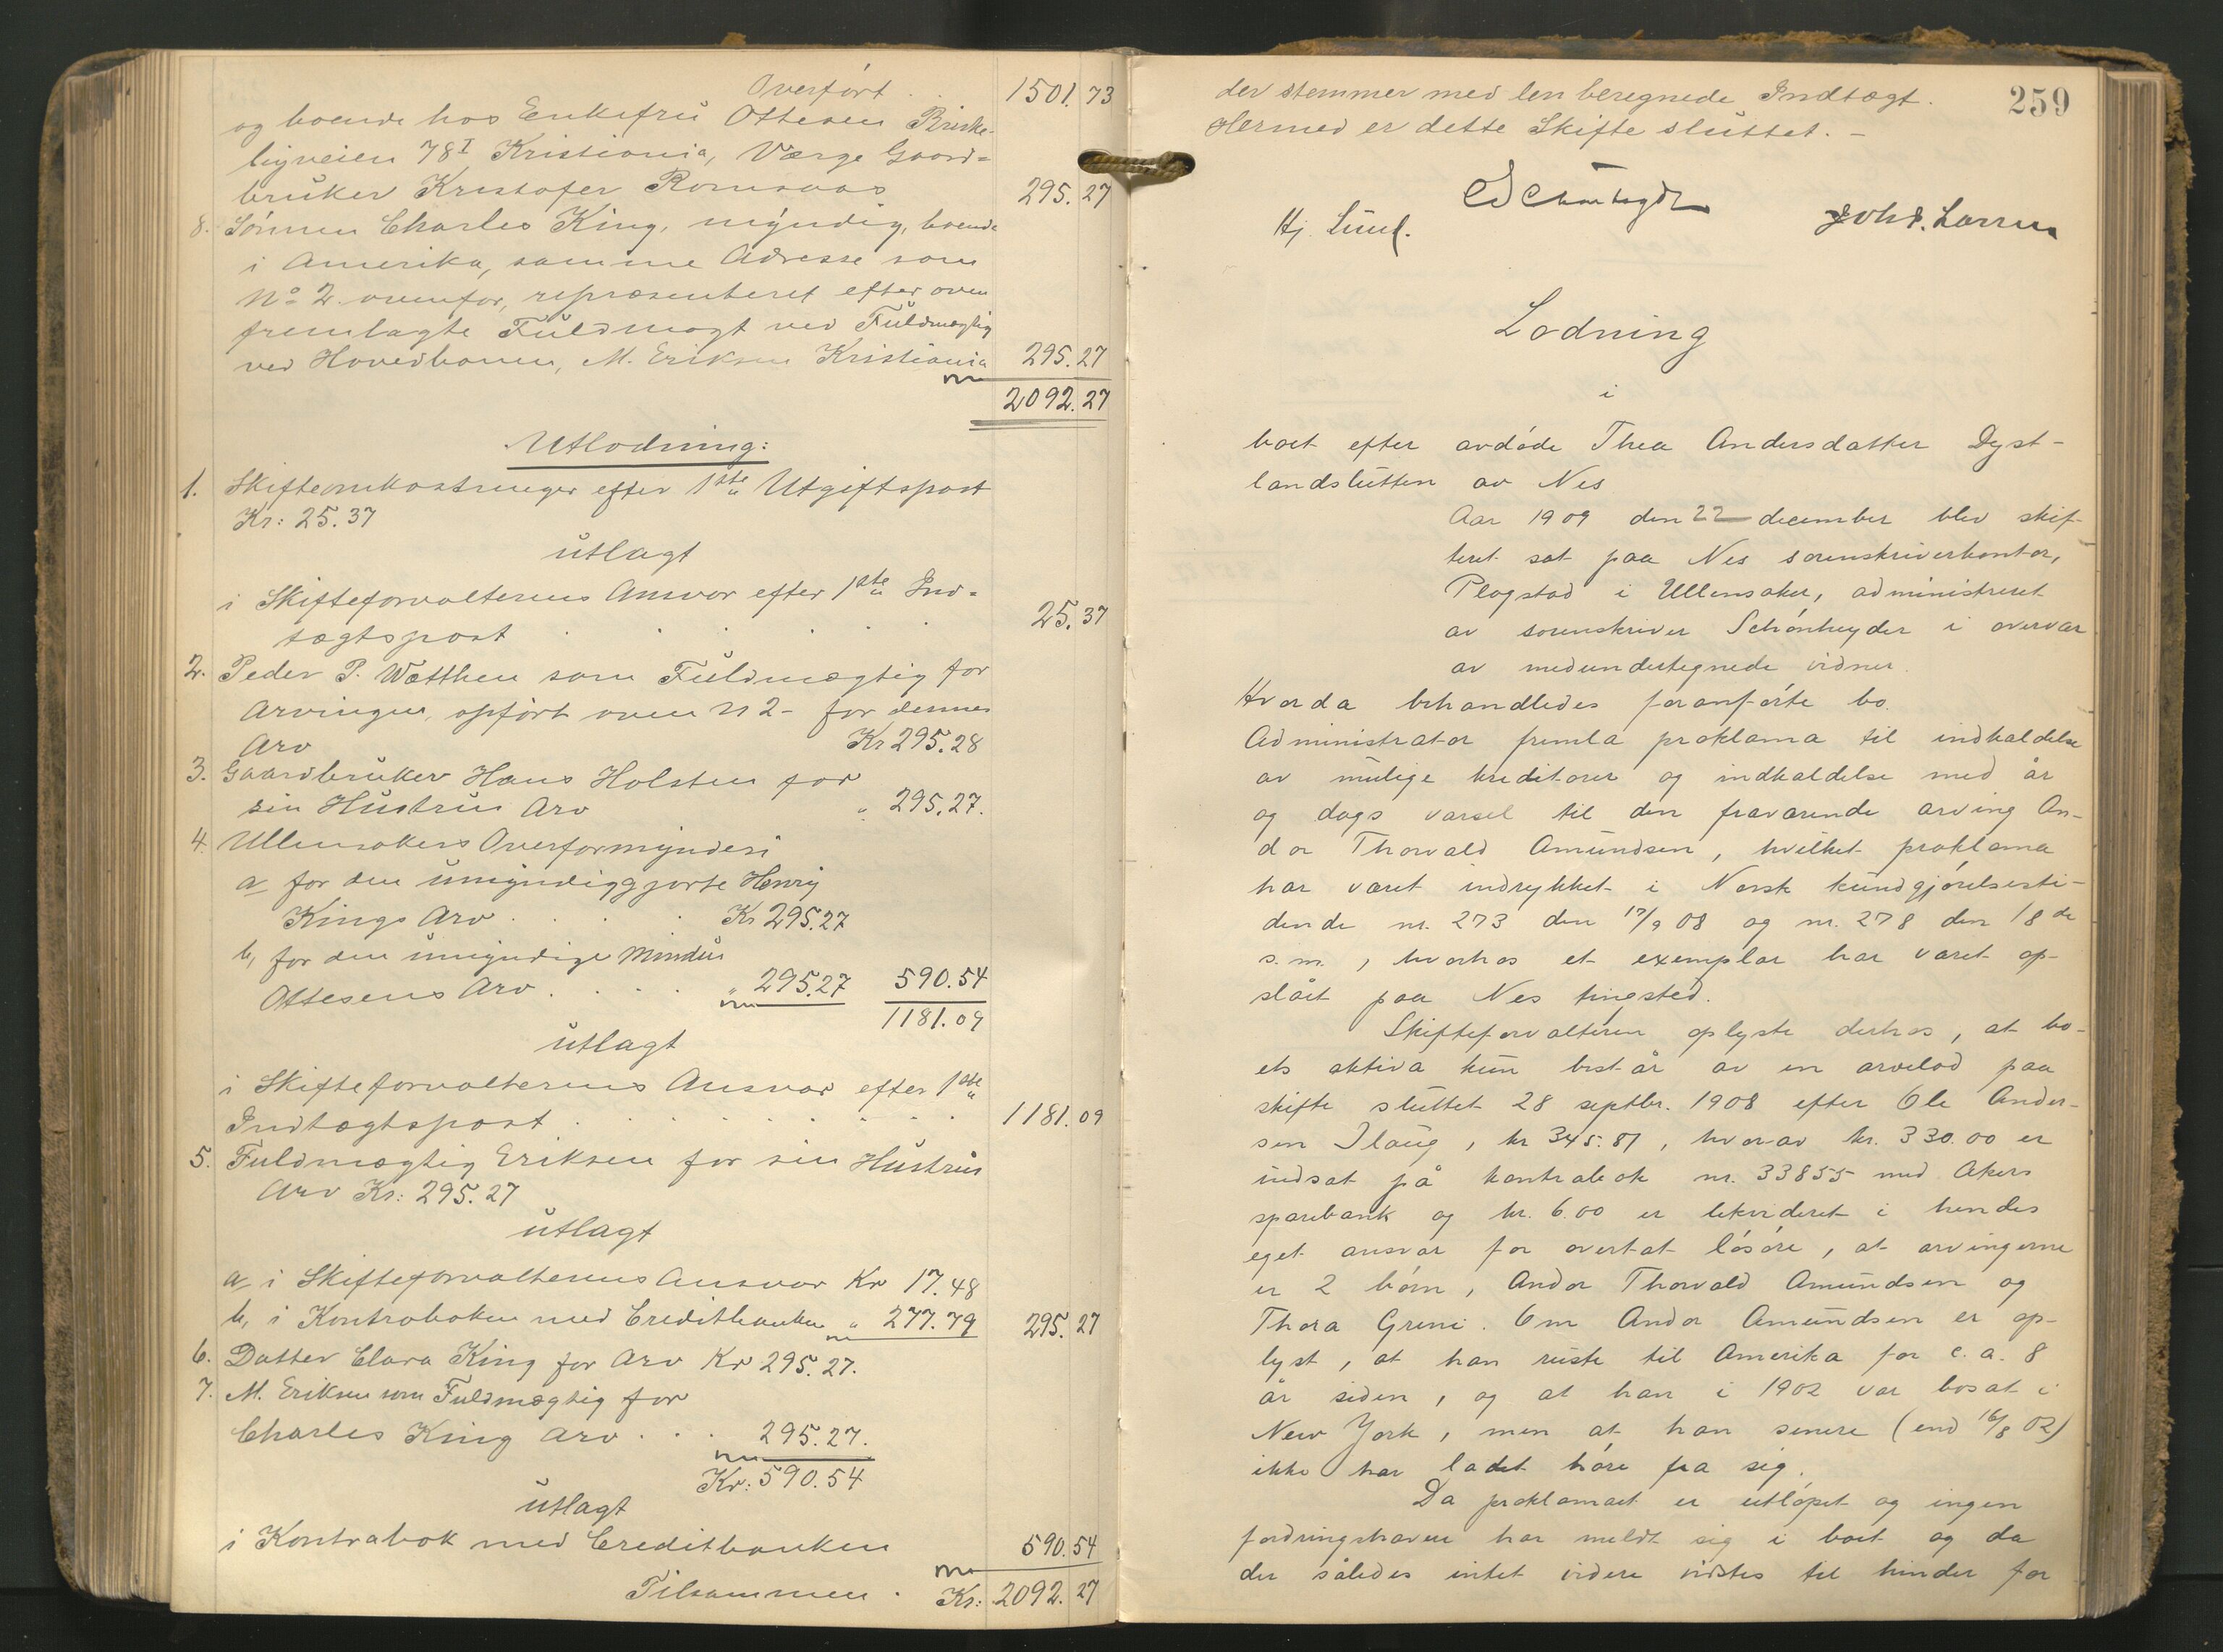 Overført 1501.73
og boende hos Enkefru Ottesen Briske-
byveien 78 I Kristiania, Værge Gaard=
bruker Kristofer Romsaas 295.27
8. Sønnen Charles King, myndig, boende
i Amerika, samme Adresse som
No 2 ovenfor, repræsenteret efter oven
fremlagte Fuldmagt ved Fuldmægtig
ved Hovedbanen, M. Eriksen Kristiania 295.27
2092.27
Utlodning:
1. Skifteomkostninger efter 1ste Utgiftspost
Kr: 25.37
utlagt
i Skifteforvalterens Ansvar efter 1ste Ind=
tægtspost 25.37
2. Peder P. Wætthen som Fuldmægtig for
Arvingen, opført oven N 2 - for dennes
Arv Kr 295.28
3. Gaardbruker Hans Holsten for
sin Hustrus Arv " 295.27.
4. Ullensakers Overformynderi
a for den umyndiggjorte Henry
Kings Arv Kr 295.27
b, for den umyndige Mindus
Ottesens Arv " 295.27 590.54
1181.09
utlagt
i Skifteforvalterens Ansvar efter 1ste
Indtægtspost 1181.09
5. Fuldmægtig Eriksen for sin Hustrus
Arv Kr: 295.27
utlagt
a i Skifteforvalterens Ansvar Kr 17.48
b, i Kontraboken med Creditbanken " 277.79 295.27
6. Datter Clara King for Arv Kr 295.27.
7. M. Eriksen som Fuldmægtig for
Charles King Arv 295.27.
Kr: 590.54
utlagt
i Kontrabok med Creditbanken 590.54
Tilsammen Kr: 2092.27
259
der stemmer med den beregnede Indtægt.
Hermed er dette Skifte sluttet. -
Schønheyder
Hj. Lund. Joh. Larsen
Lodning
i
boet efter avdøde Thea Andersdatter Dyst-
landslutten av Nes
Aar 1909 den 22 december blev skif-
teret sat paa Nes sorenskriverkontor,
Plogstad i Ullensaker, administreret
av sorenskriver Schønheyder i overvær
av medundertegnede vidner.
Hvorda behandledes foranførte bo.
Administrator fremla proklama til indkaldelse
av mulige kreditorer og indkaldelse med år
og dags varsel til den fraværende arving An-
dor Thorvald Amundsen, hvilket proklama
har været indrykket i Norsk kundgjørelsesti-
dende nr. 273 den 17/9 08 og nr. 278 den 18de
s.m., hvorhos et exemplar har været op-
slået paa Nes tingsted.
Skifteforvalteren oplyste derhos, at bo-
ets aktiva kun består av en arvelod paa
skifte sluttet 28 septbr. 1908 efter Ole Ander-
sen Ilaug, kr 345.87, hvorav kr. 330.00 er
indsat på kontrabok nr. 33855 med Akers
sparebank og kr. 6.00 er likvideret i hendes
eget ansvar for overtat løsøre, at arvingerne
er 2 børn, Andor Thorvald Amundsen og
Thora Greni. Om Andor Amundsen er op-
lyst, at han reiste til Amerika for c.a. 8
år siden, og at han i 1902 var bosat i
New York, men at han senere (end 16/8 02)
ikke har ladet høre fra sig.
Da proklamaet er utløpet og ingen
fordringshaver har meldt sig i boet og da
der således intet videre vidstes til hinder for